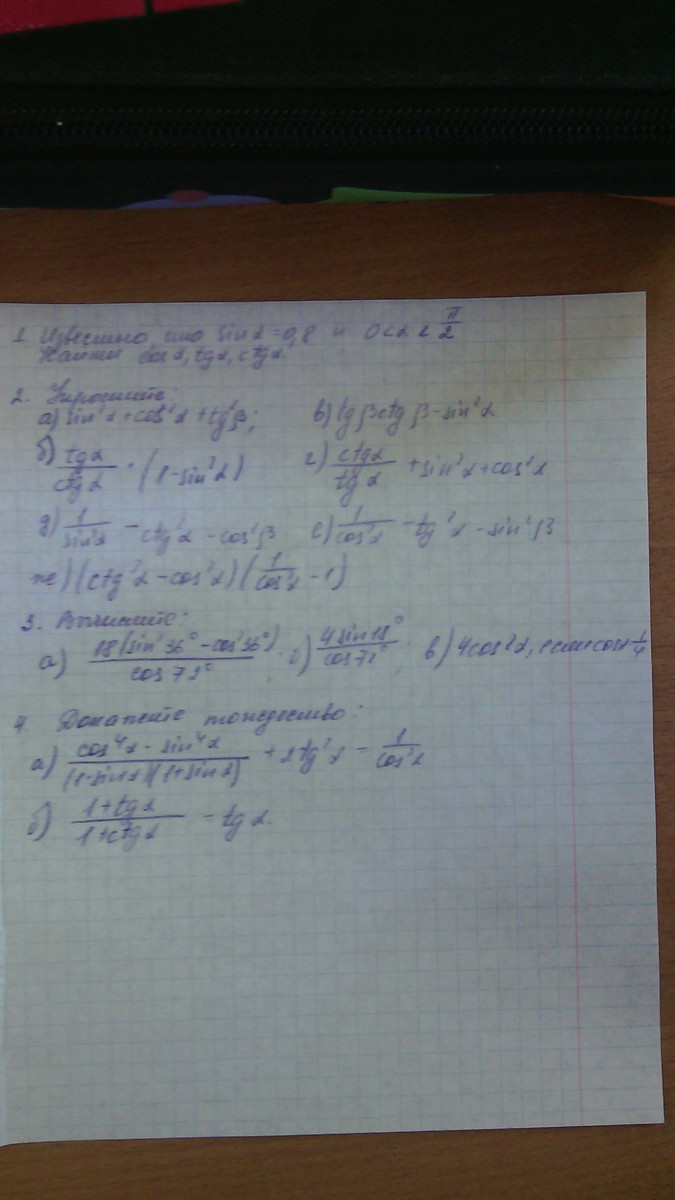 1. Известно, что sin α = 0,8 и 0 < α < π/2
Найти cos α, tg α, ctg α.
2. Упростите:
а) sin²α + cos²α + tg²β; в) tg β ctg β − sin²α
б) tg α / ctg α · (1 − sin²α) г) ctg α / tg α + sin²α + cos²α
д) 1/sin²α − ctg²α − cos²β е) 1/cos²α − tg²α − sin²β
ж) (ctg²α − cos²α)(1/cos²α − 1)
3. Вычислите:
а) 18(sin²36° − cos²36°) / cos 72° б) 4 sin 18° / cos 72° в) 4cos 2α, если cos α
4. Докажите тождество:
а) cos⁴α − sin⁴α / (1−sin α)(1+sin α) + 2tg²α = 1/cos²α
б) 1 + tg α / 1 + ctg α = tg α.